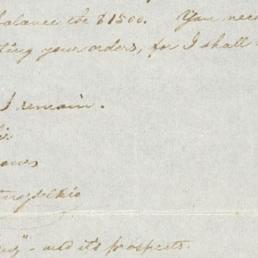 balance the $1500. You nee
ting your orders, for I shall
I remain.
ir
ours
" and its prospects.